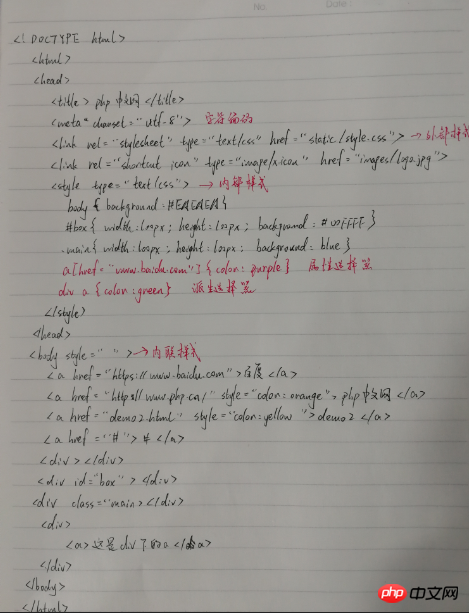 No.
Date:
<! DOCTYPE html>
<html>
<head>
<title> php 中文网 </title>
<meta charset="utf-8"> 字符编码
<link rel="stylesheet" type="text/css" href="static/style.css"> → 外部样式
<link rel="shortcut icon" type="image/x-icon" href="images/logo.jpg">
<style type="text/css"> → 内部样式
body { background: #EAEAEA }
#box { width: 100px; height: 100px; background: #00FFFF }
.main { width: 100px; height: 100px; background: blue }
a[href="www.baidu.com"] { color: purple } 属性选择器
div a {color: green} 派生选择器
</style>
</head>
<body style=" "> → 内联样式
<a href="https://www.baidu.com">百度</a>
<a href="http://www.php.cn/" style="color: orange"> php中文网 </a>
<a href="demo2.html" style="color: yellow">demo2 </a>
<a href="#"> # </a>
<div> </div>
<div id="box"> </div>
<div class="main> </div>
<div>
<a> 这是div下的a </a>
</div>
</body>
</html>
php 中文网